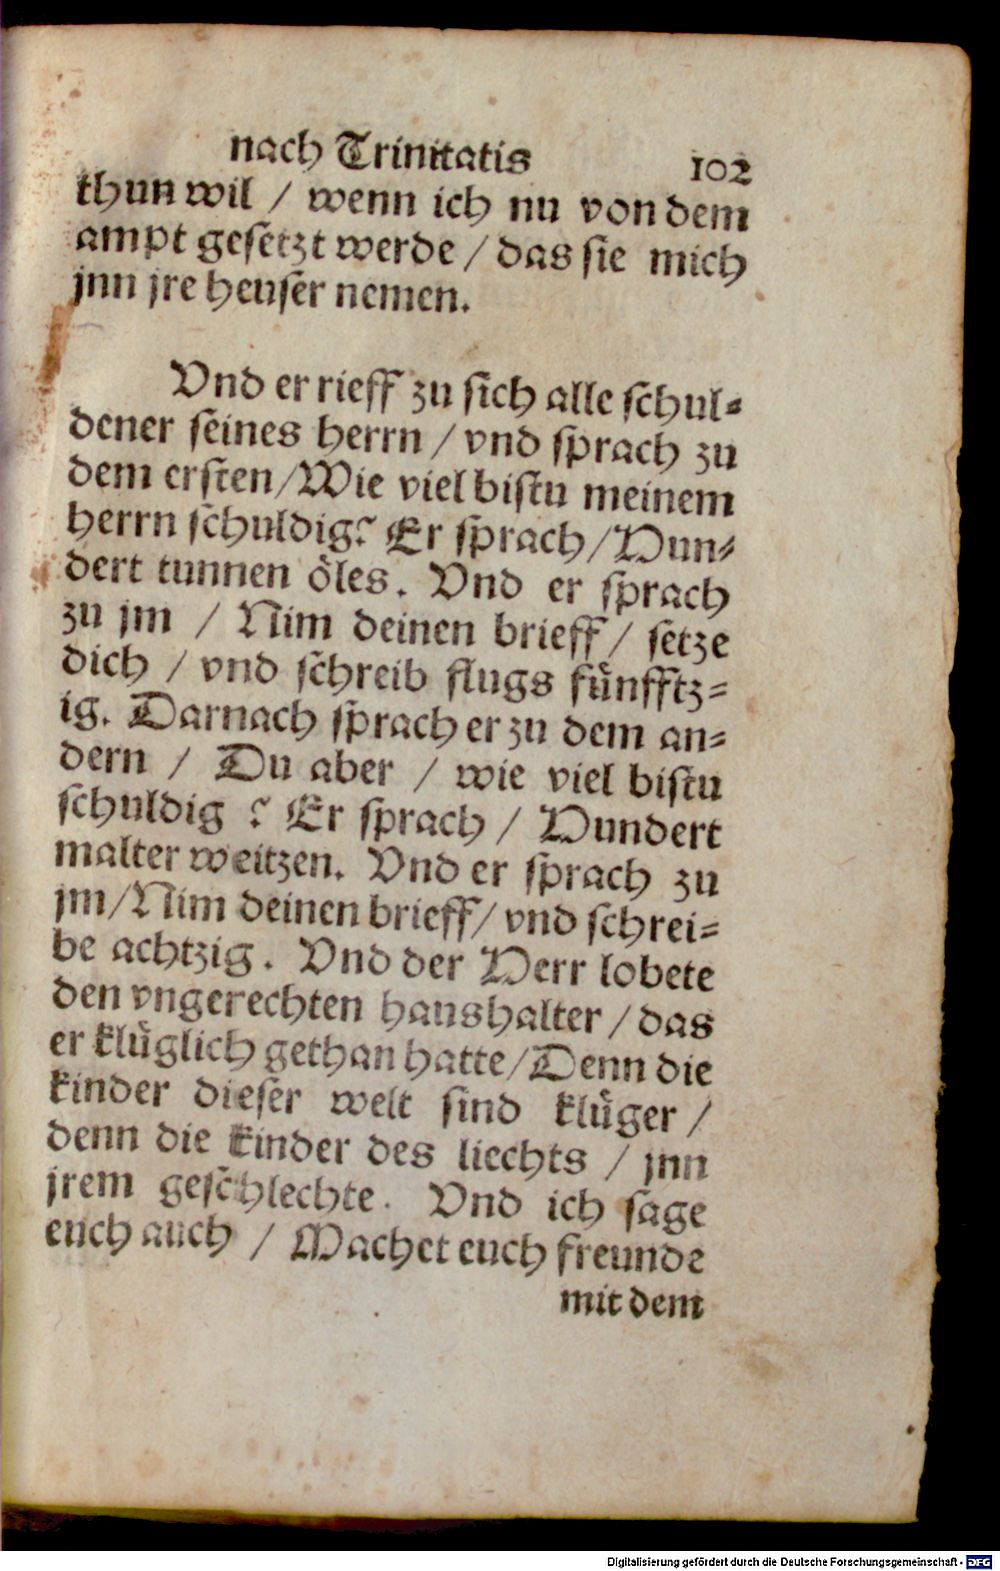 nach Trinitatis 102
thun wil / wenn ich nu von dem
ampt gesetzt werde / das sie mich
jnn jre heuser nemen.
Vnd er rieff zu sich alle schul-
dener seines herrn / vnd sprach zu
dem ersten / Wie viel bistu meinem
herrn schuldig? Er sprach / Hun-
dert tunnen öles. Vnd er sprach
zu jm / Nim deinen brieff / setze
dich / vnd schreib flugs fünfftz-
ig. Darnach sprach er zu dem an-
dern / Du aber / wie viel bistu
schuldig ? Er sprach / Hundert
malter weitzen. Vnd er sprach zu
jm / Nim deinen brieff / vnd schrei-
be achtzig. Vnd der Herr lobete
den vngerechten haushalter / das
er klüglich gethan hatte / Denn die
kinder dieser welt sind klüger /
denn die kinder des liechts / jnn
jrem geschlechte. Vnd ich sage
euch auch / Machet euch freunde
mit dem
Digitalisierung gefördert durch die Deutsche Forschungsgemeinschaft - DFG